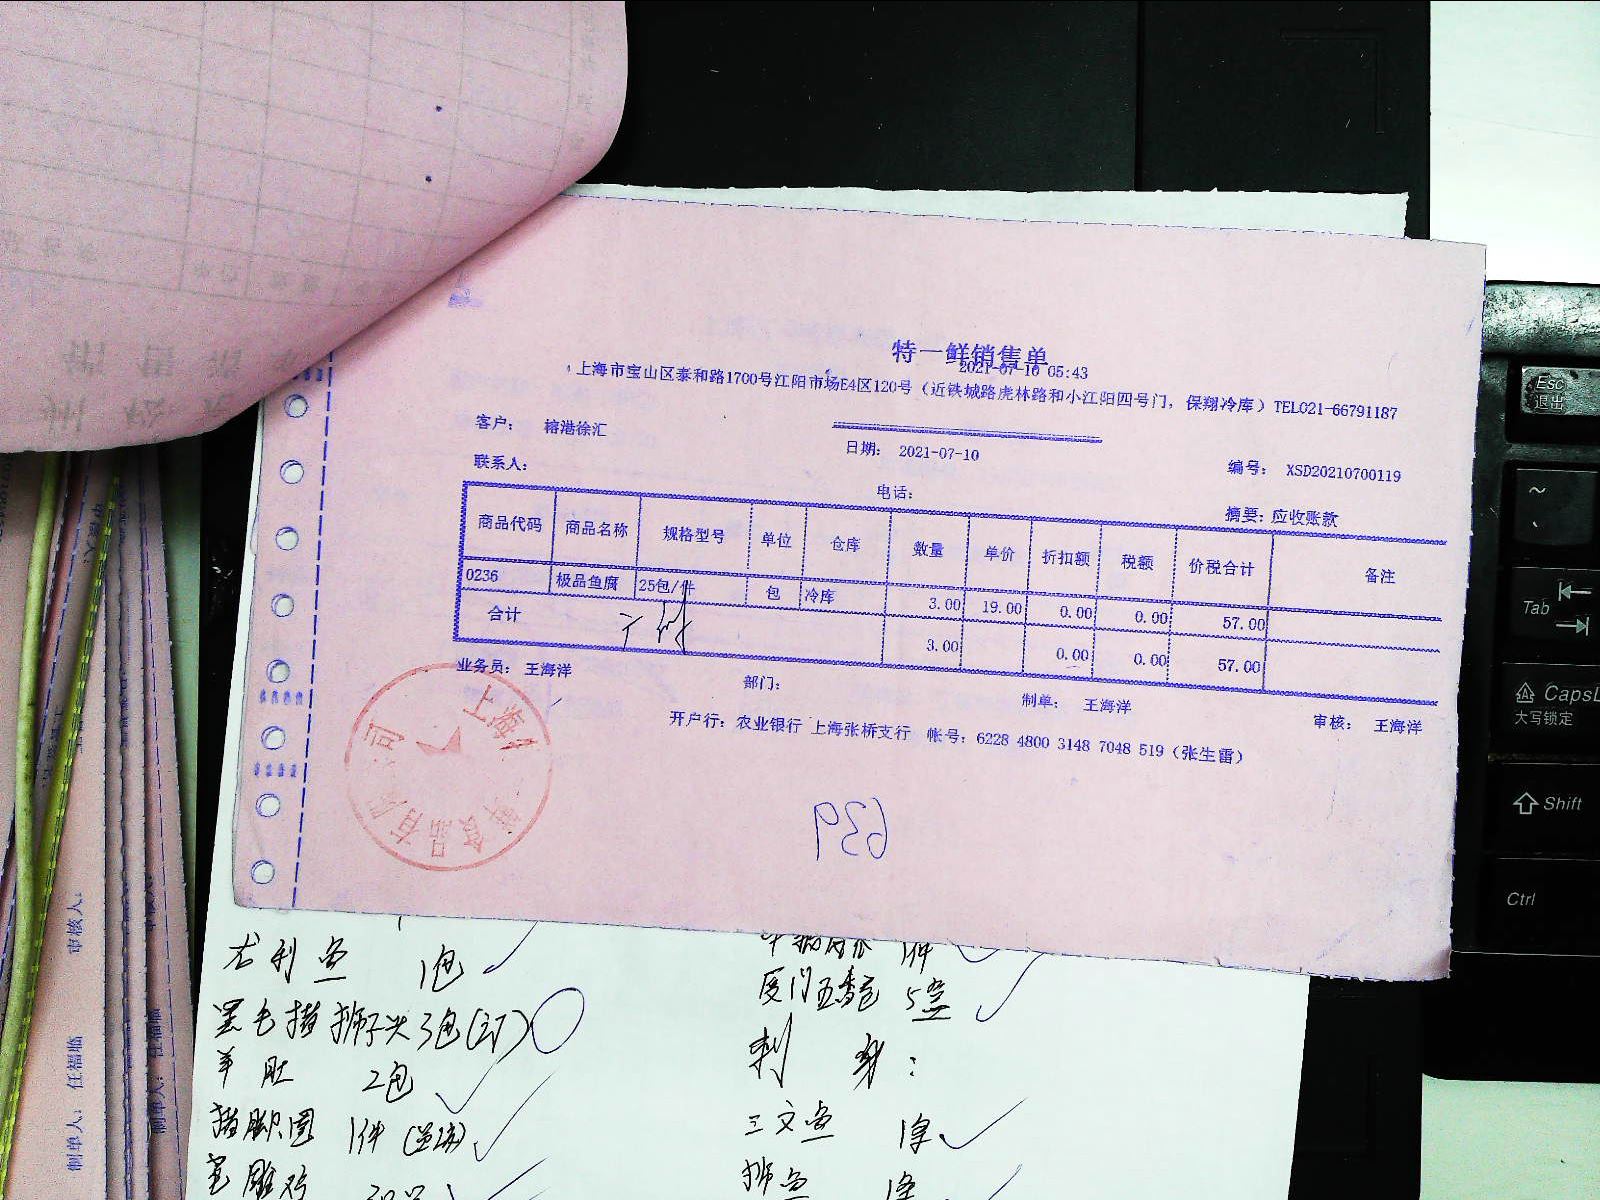 特一鲜销售单
2021-07-10 05:43
上海市宝山区泰和路1700号江阳市场E4区120号（近铁城路虎林路和小江阳四号门，保翔冷库）TEL021-66791187
客户： 榕港徐汇
日期： 2021-07-10
编号： XSD20210700119
联系人：
电话：
摘要：应收账款
商品代码 商品名称 规格型号 单位 仓库 数量 单价 折扣额 税额 价税合计 备注
0236 极品鱼腐 25包/件 包 冷库 3.00 19.00 0.00 0.00 57.00
合计 3.00 0.00 0.00 57.00
业务员： 王海洋
部门：
制单： 王海洋
审核： 王海洋
开户行：农业银行 上海张桥支行 帐号：6228 4800 3148 7048 519（张生雷）
639
上海 食品有 司
龙利鱼 1包
黑毛猪狮子头3包(订)
羊肚 2包
猪脚圈 1件
厦门五香卷 5盒
刺身：
三文鱼 1条
审核人：
制单人： 任福临
制单人： 任福临
Esc
退出
~
Tab
CapsL
大写锁定
Shift
Ctrl